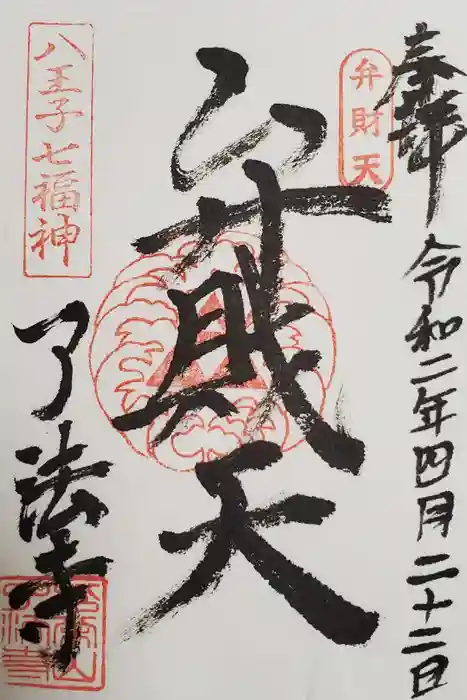 奉拝
令和二年四月二十二日
弁財天
弁財天
八王子七福神
了法寺